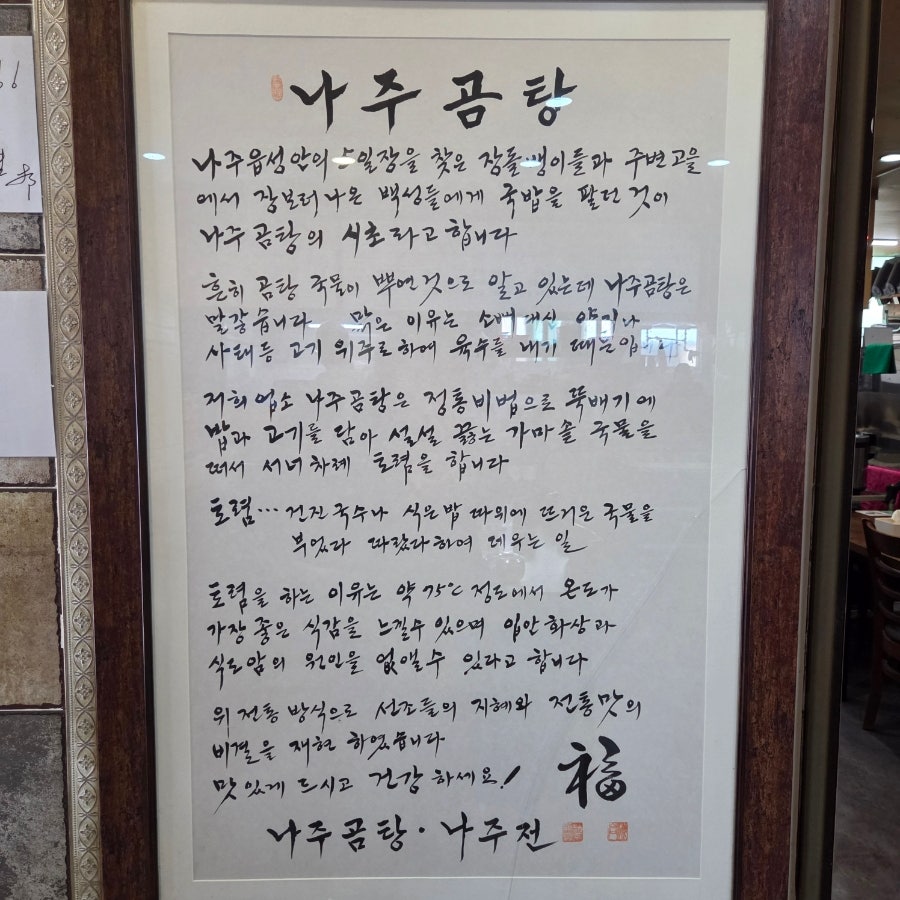 나주곰탕
나주읍성안의 5일장을 찾은 장돌뱅이들과 주변고을
에서 장보러나온 백성들에게 국밥을 팔던 것이
나주곰탕의 시초라고 합니다
흔히 곰탕 국물이 뿌연것으로 알고 있는데 나주곰탕은
말갛습니다 맑은 이유는 소뼈대신 양지나
사태등 고기 위주로하여 육수를 내기 때문입니다
저희업소 나주곰탕은 정통비법으로 뚝배기에
밥과 고기를 담아 설설 끓는 가마솥 국물을
떠서 서너차례 토렴을 합니다
토렴… 건진국수나 식은밥 따위에 뜨거운 국물을
부었다 따랐다하여 데우는 일
토렴을 하는 이유는 약 75℃ 정도에서 온도가
가장 좋은 식감을 느낄수 있으며 입안화상과
식도암의 원인을 없앨수 있다고 합니다
위 전통방식으로 선조들의 지혜와 전통맛의
비결을 재현하였습니다
맛있게 드시고 건강하세요!
福
나주곰탕·나주전